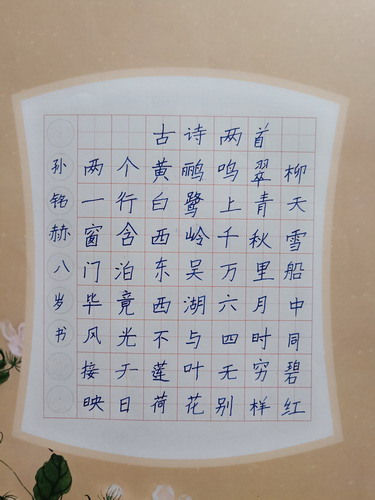 古诗两首
两个黄鹂鸣翠柳
一行白鹭上青天
窗含西岭千秋雪
门泊东吴万里船
毕竟西湖六月中
风光不与四时同
接天莲叶无穷碧
映日荷花别样红
孙铭赫八岁书